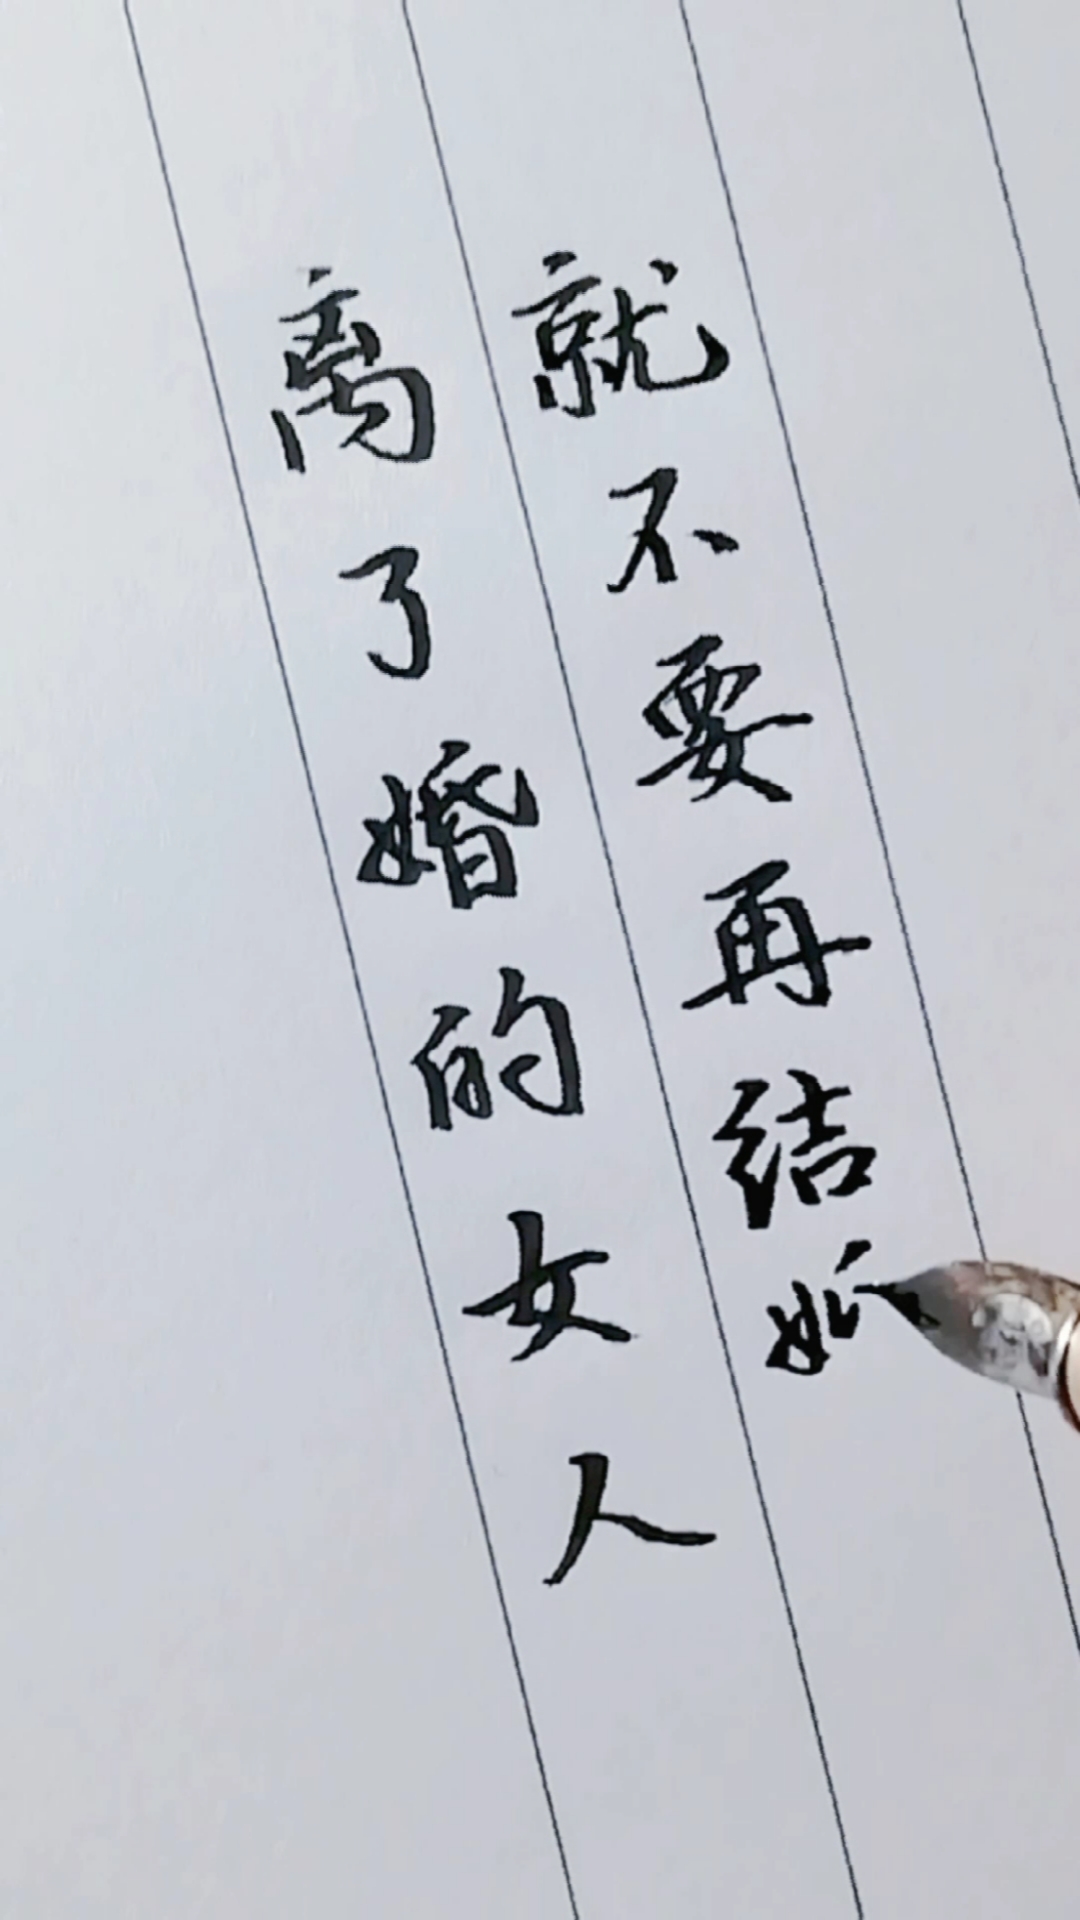 离了婚的女人
就不要再结